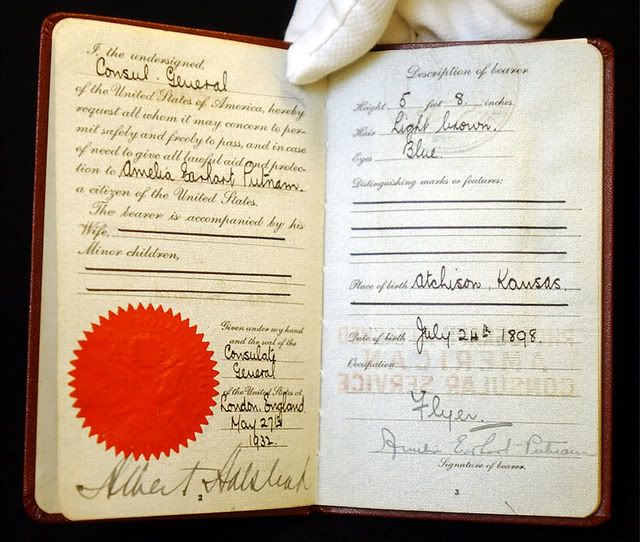 I, the undersigned,
Consul General
of the United States of America, hereby
request all whom it may concern to per-
mit safely and freely to pass, and in case
of need to give all lawful aid and protec-
tion to Amelia Earhart Putnam.
a citizen of the United States.
The bearer is accompanied by his
Wife,
Minor children,
Given under my hand
and the seal of the
Consulate
General
of the United States at
London, England
May 27th
1932.
Albert Halstead
2
Description of bearer
Height 5 feet 8 inches.
Hair Light brown.
Eyes Blue.
Distinguishing marks or features:
Place of birth Atchison, Kansas.
Date of birth July 24th 1898.
Occupation
AMERICAN
CONSULAR SERVICE
Flyer.
Amelia Earhart Putnam
Signature of bearer.
3